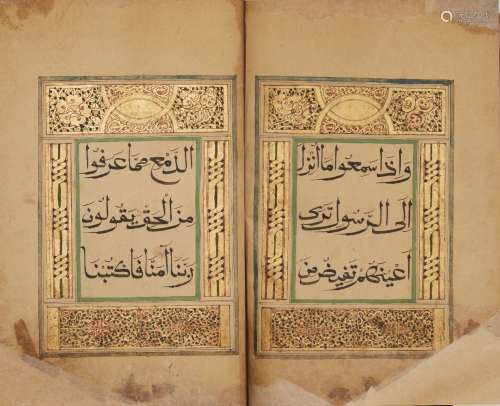 وَاِذَا سَمِعُوا مَا اُنْزِلَ
اِلَى الرَّسُولِ تَرٰى
اَعْيُنَهُمْ تَفِيضُ مِنَ
الدَّمْعِ مِمَّا عَرَفُوا
مِنَ الْحَقِّ يَقُولُونَ
رَبَّنَا آمَنَّا فَاكْتُبْنَا